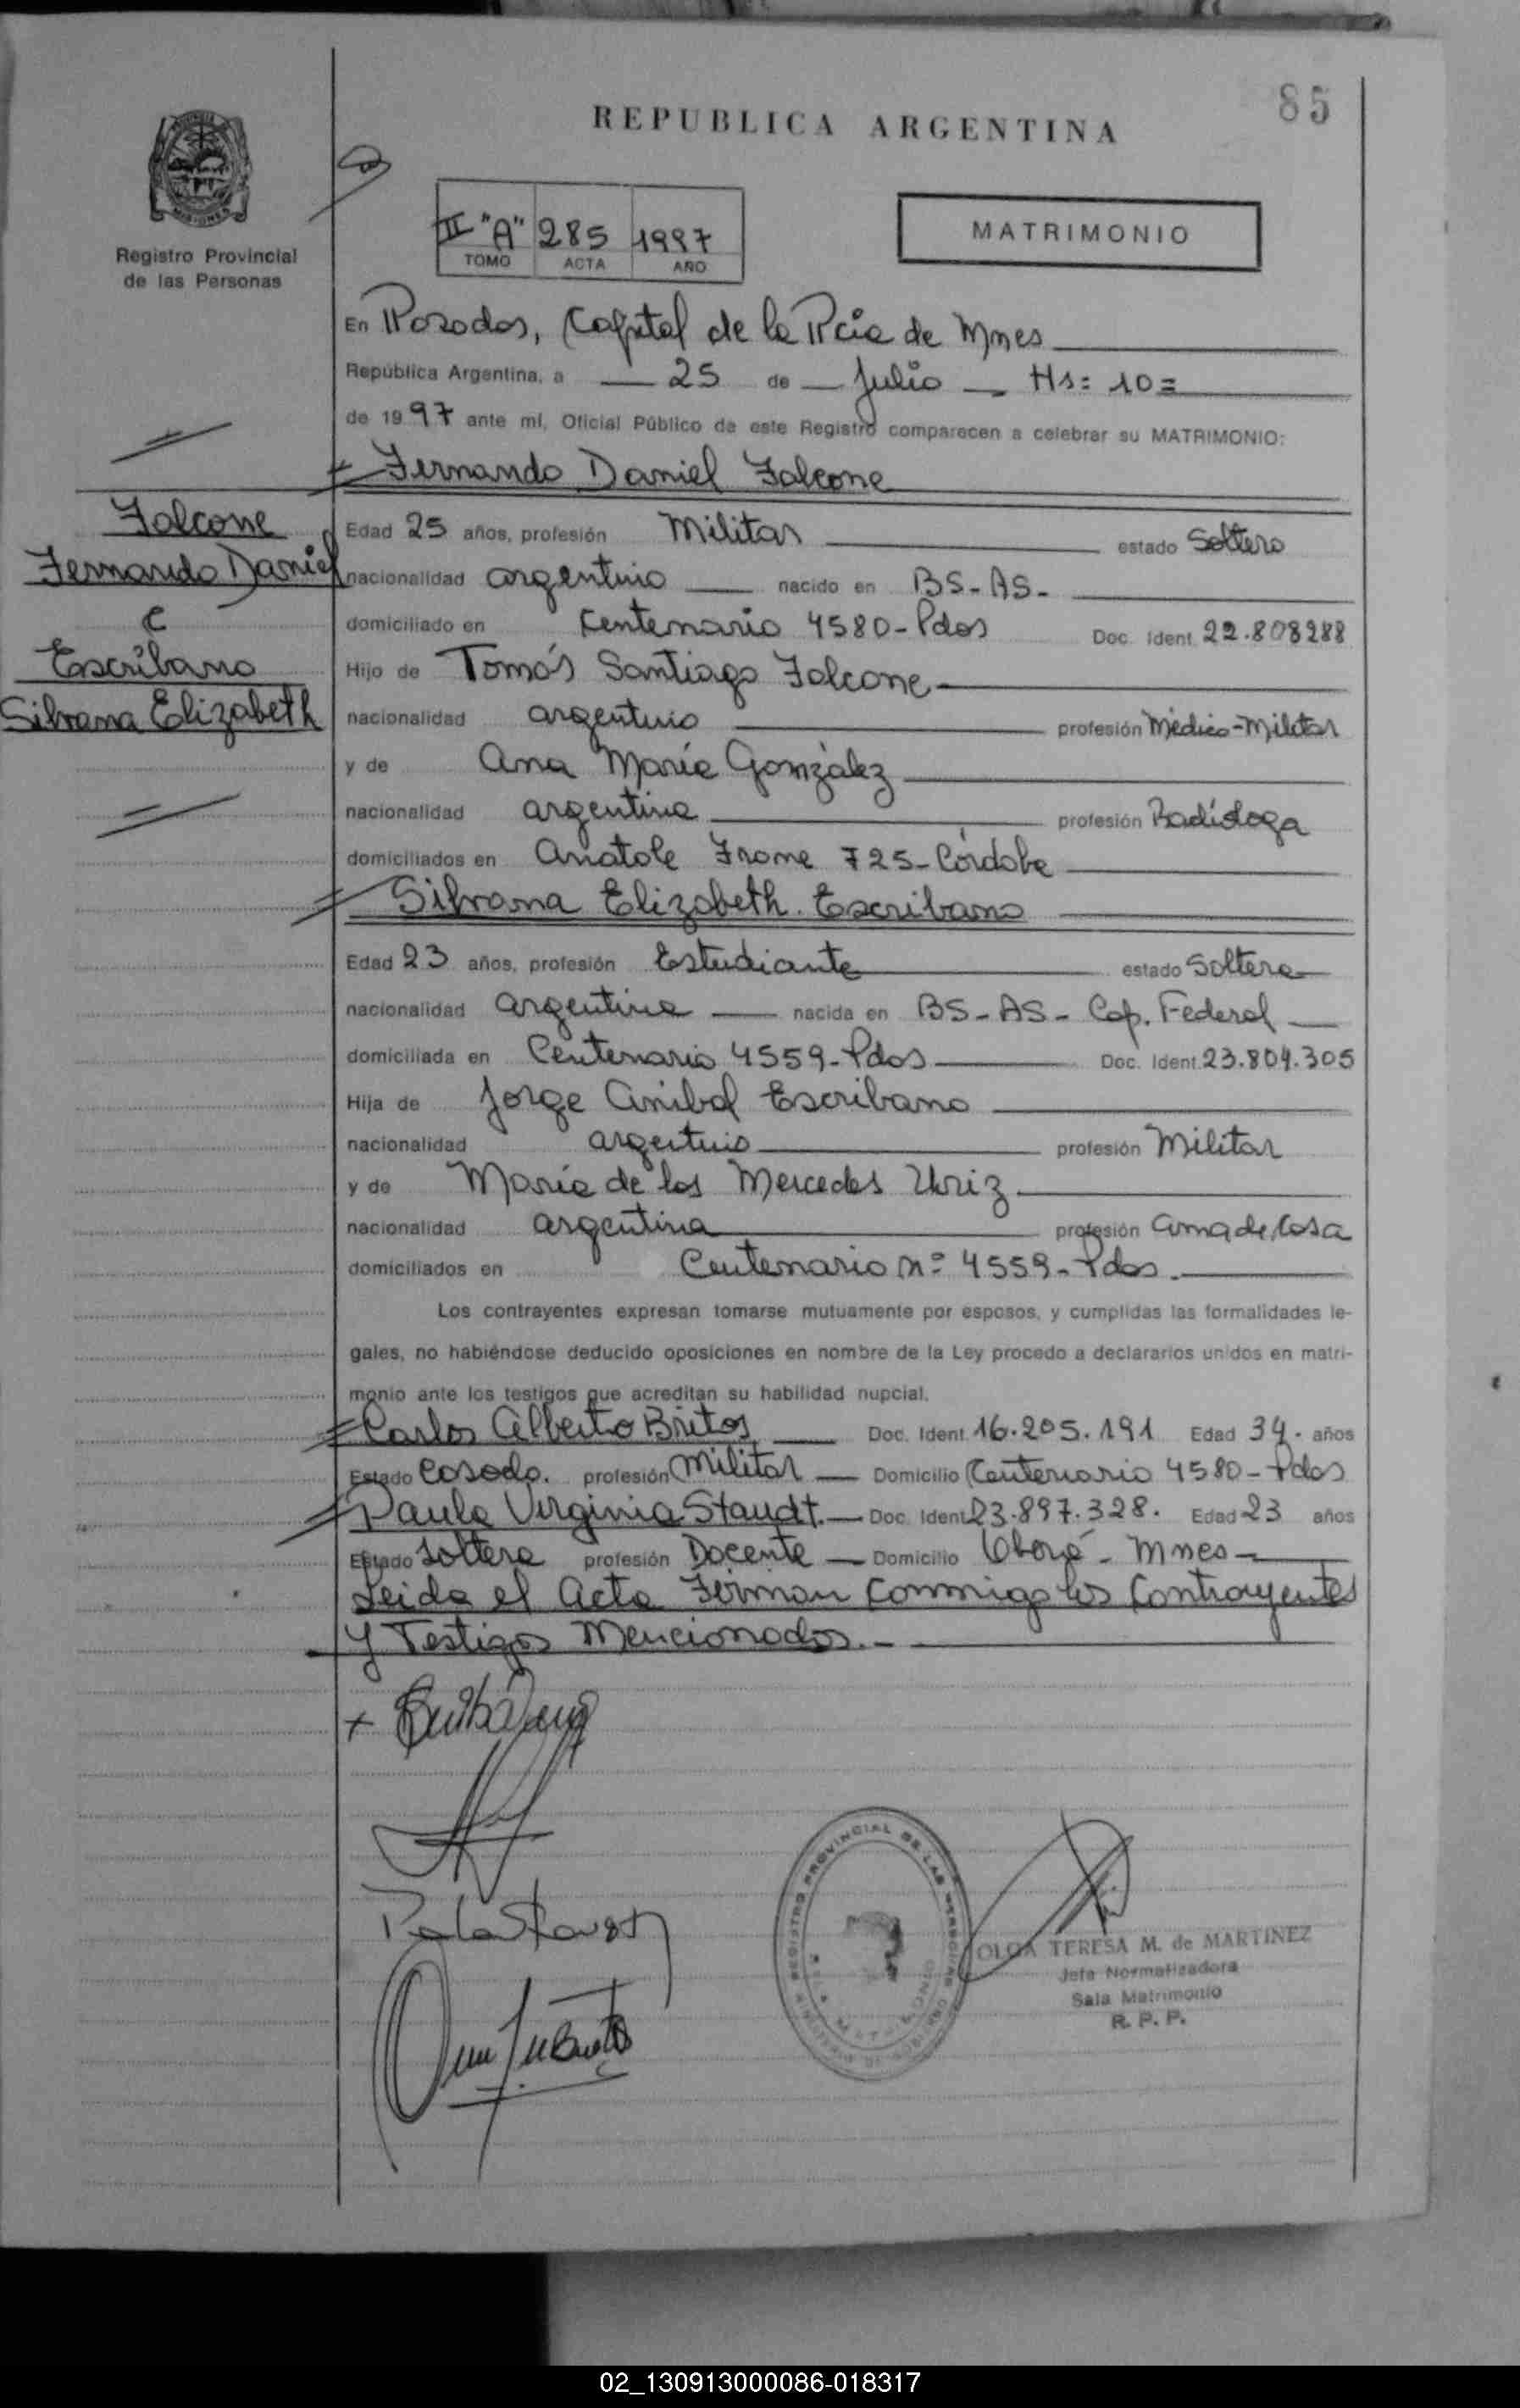 85
REPUBLICA ARGENTINA
Registro Provincial
de las Personas
II "A" 285 1997
TOMO ACTA AÑO
MATRIMONIO
En Posadas, Capital de la Pcia de Mnes
República Argentina, a 25 de Julio Hs: 10=
de 1997 ante mí, Oficial Público de este Registro comparecen a celebrar su MATRIMONIO:
Fernando Daniel Falcone
Falcone
Fernando Daniel
c
Escribano
Silvana Elizabeth
Edad 25 años, profesión Militar estado Soltero
nacionalidad argentino nacido en BS-AS-
domiciliado en Centenario 4580-Pdas Doc. Ident. 22.808288
Hijo de Tomás Santiago Falcone
nacionalidad argentino profesión Médico-Militar
y de Ana María González
nacionalidad argentina profesión Radióloga
domiciliados en Anatole Frome 725-Córdoba
Silvana Elizabeth Escribano
Edad 23 años, profesión Estudiante estado Soltera
nacionalidad argentina nacida en BS-AS- Cap. Federal
domiciliada en Centenario 4559-Pdas Doc. Ident. 23.804.305
Hija de Jorge Anibal Escribano
nacionalidad argentino profesión Militar
y de María de las Mercedes Uriz
nacionalidad argentina profesión Ama de Casa
domiciliados en Centenario Nº 4559-Pdas.
Los contrayentes expresan tomarse mutuamente por esposos, y cumplidas las formalidades le-
gales, no habiéndose deducido oposiciones en nombre de la Ley procedo a declararlos unidos en matri-
monio ante los testigos que acreditan su habilidad nupcial.
Carlos Alberto Britos Doc. Ident. 16.205.191 Edad 34. años
Estado Casado. profesión Militar Domicilio Centenario 4580-Pdas
Paula Virginia Staudt. Doc. Ident. 23.897.328. Edad 23 años
Estado Soltera profesión Docente Domicilio Oberá - Mnes
Leida el Acta Firman Conmigo los Contrayentes
y Testigos Mencionados.-
REGISTRO PROVINCIAL DE LAS PERSONAS
OLGA TERESA M. de MARTINEZ
Jefa Normalizadora
Sala Matrimonio
R. P. P.
02_130913000086-018317